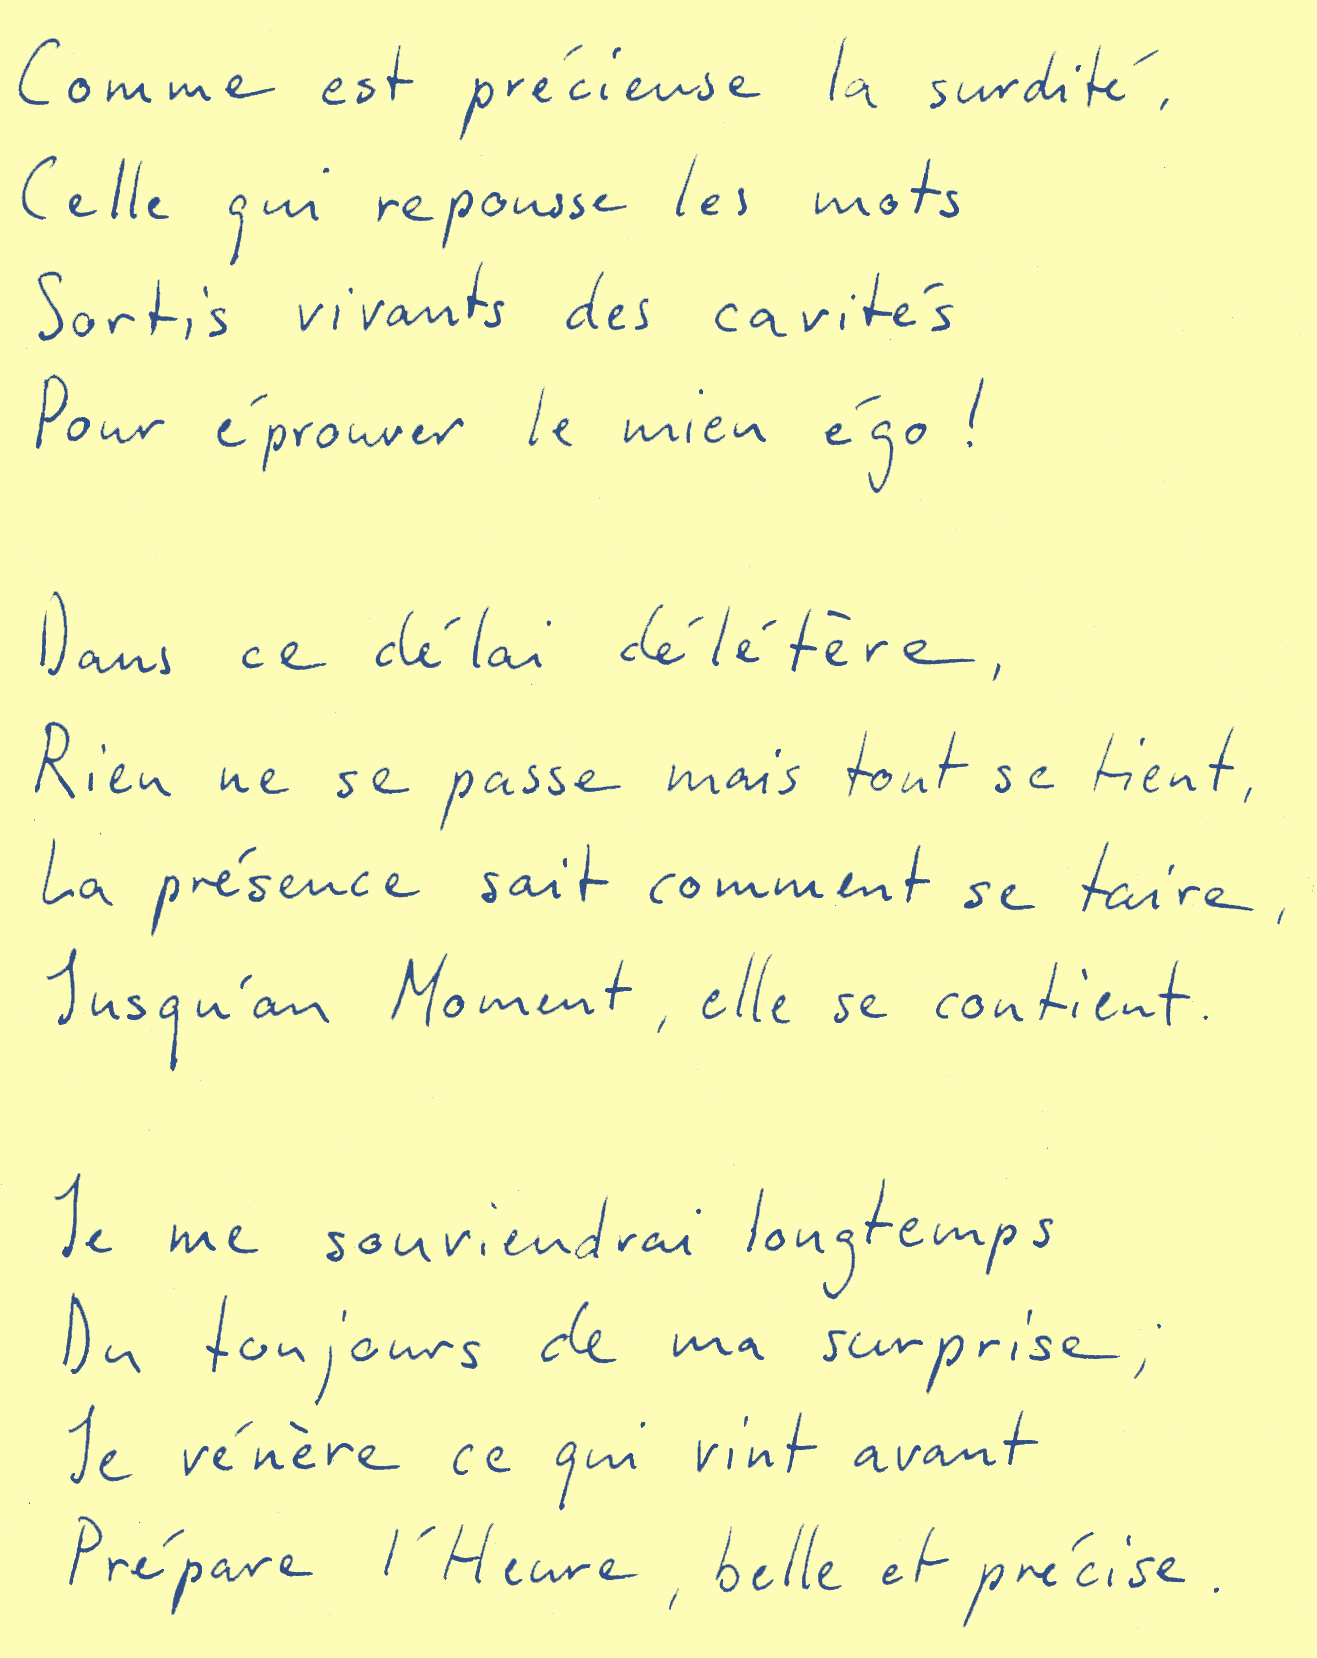 Comme est précieuse la surdité,
Celle qui repousse les mots
Sortis vivants des cavités
Pour éprouver le mien égo !
Dans ce délai délétère,
Rien ne se passe mais tout se tient,
La présence sait comment se taire,
Jusqu'au Moment, elle se contient.
Je me souviendrai longtemps
Du toujours de ma surprise ;
Je vénère ce qui vint avant
Prépare l'Heure, belle et précise.